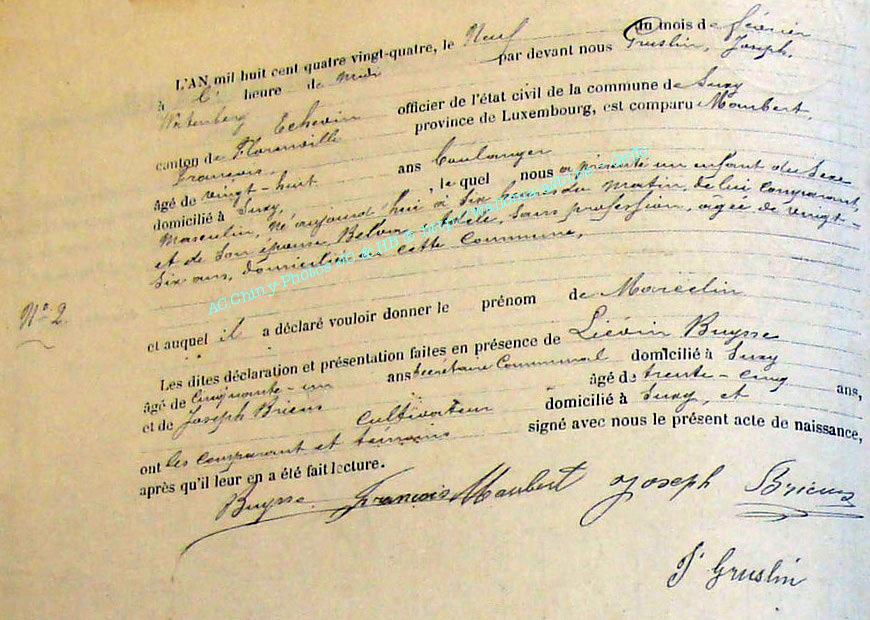 L'AN mil huit cent quatre vingt-quatre, le Neuf du mois de février
à heure de par devant nous Gruslin, Joseph.
Echevin officier de l'état civil de la commune de Suxy
canton de Florenville province de Luxembourg, est comparu Maubert,
François
âgé de vingt-huit ans boulanger
domicilié à Suxy, le quel nous a présenté un enfant du Sexe
Masculin, né aujourd'hui à six heures du matin, de lui comparant,
et de son épouse Adèle, sans profession, agée de vingt-
six ans, domiciliée en cette commune,
N° 2
et auquel il a déclaré vouloir donner le prénom de Marcelin
Les dites déclaration et présentation faites en présence de Liévin Buysse
âgé de cinquante-un ans Secrétaire Communal domicilié à Suxy
et de Joseph Brieus cultivateur âgé de trente-cinq ans,
domicilié à Suxy, et
ont les comparant et témoins signé avec nous le présent acte de naissance,
après qu'il leur en a été fait lecture.
Buysse François Maubert Joseph Brieus
J. Gruslin
AC Chiny Photos